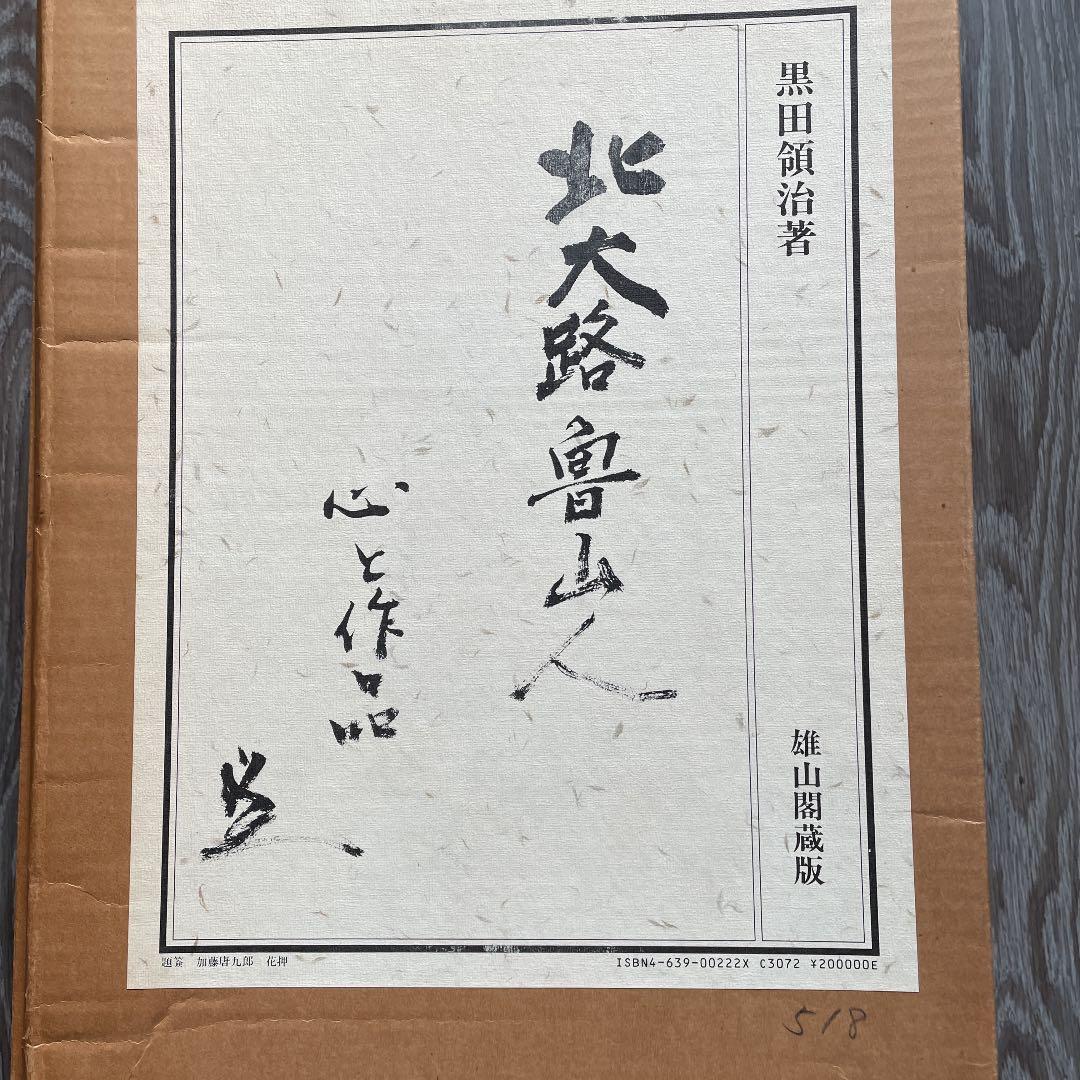 黒田領治著
雄山閣蔵版
北大路魯山人
心と作品
題簽 加藤唐九郎 花押
ISBN4-639-00222X C3072 ¥200000E
518